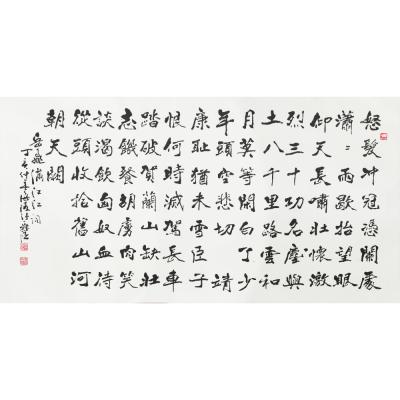 怒髮冲冠憑闌處
瀟=雨歇抬望眼
仰天長嘯壯懷激
烈三十功名塵與
土八千里路雲和
月莫等閑白了少
年頭空悲切靖
康耻猶未雪臣子
恨何時滅駕長車
踏破賀蘭山缺壯
志饑餐胡虜肉笑
談渴飲匈奴血待
從頭收拾舊山河
朝天闕
岳飛滿江紅詞
丁亥仲夏